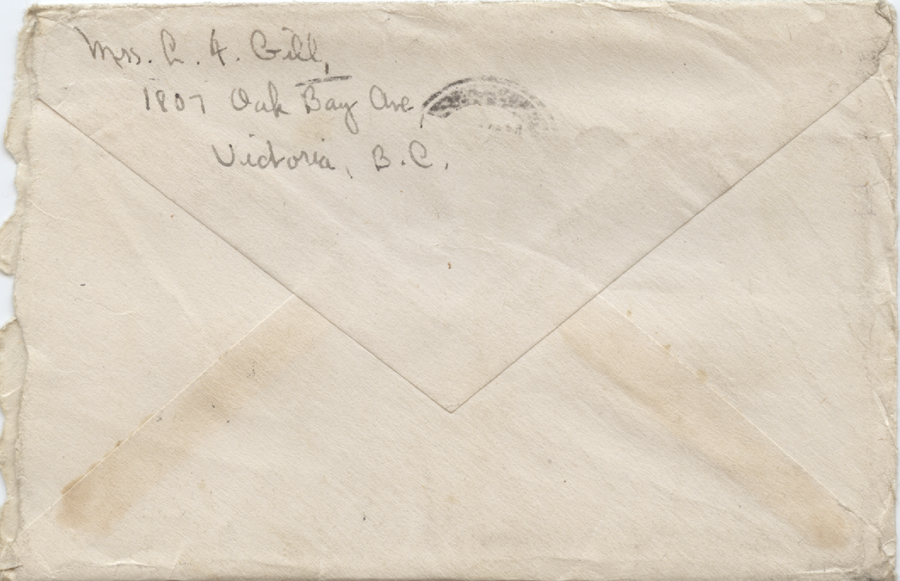 Mrs. L. A. Gill,
1807 Oak Bay Ave
Victoria, B.C.